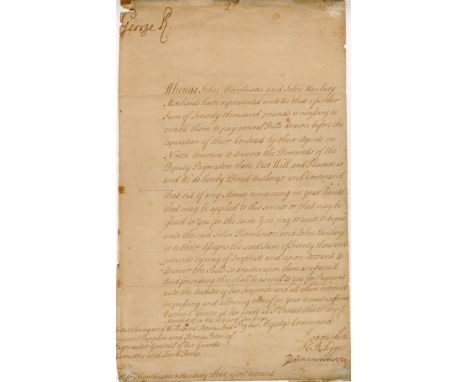 George R.
Whereas John Thomlinson and John Hanbury
Merchants have represented unto Us that a further
Sum of Seventy thousand pounds is necessary to
enable them to pay several Bills drawn before the
Expiration of their Contract by their Agents in
North America to answer the Demands of the
Deputy Paymasters there. Our Will and Pleasure is
and We do hereby Direct Authorize and Command
that out of any Monies remaining in your hands
that may be applied to this Service or that may be
issued to you for the same You pay or cause to be paid
unto the said John Thomlinson and John Hanbury
or to their Assigns the said Sum of Seventy thousand
pounds by way of Imprest and upon Account to
answer the Bills so drawn upon them as aforesaid
And for so doing this shall be as well to you for Payment
as to the Auditors of Our Imprests and all others concerned
in passing and allowing thereof on Your Account a sufficient
Warrant Given at Our Court at St James's this day of
By his Majestys Command
Paymaster General of Our Guards
Garrisons and Land Forces
Thomlinson & Hanbury upon Account